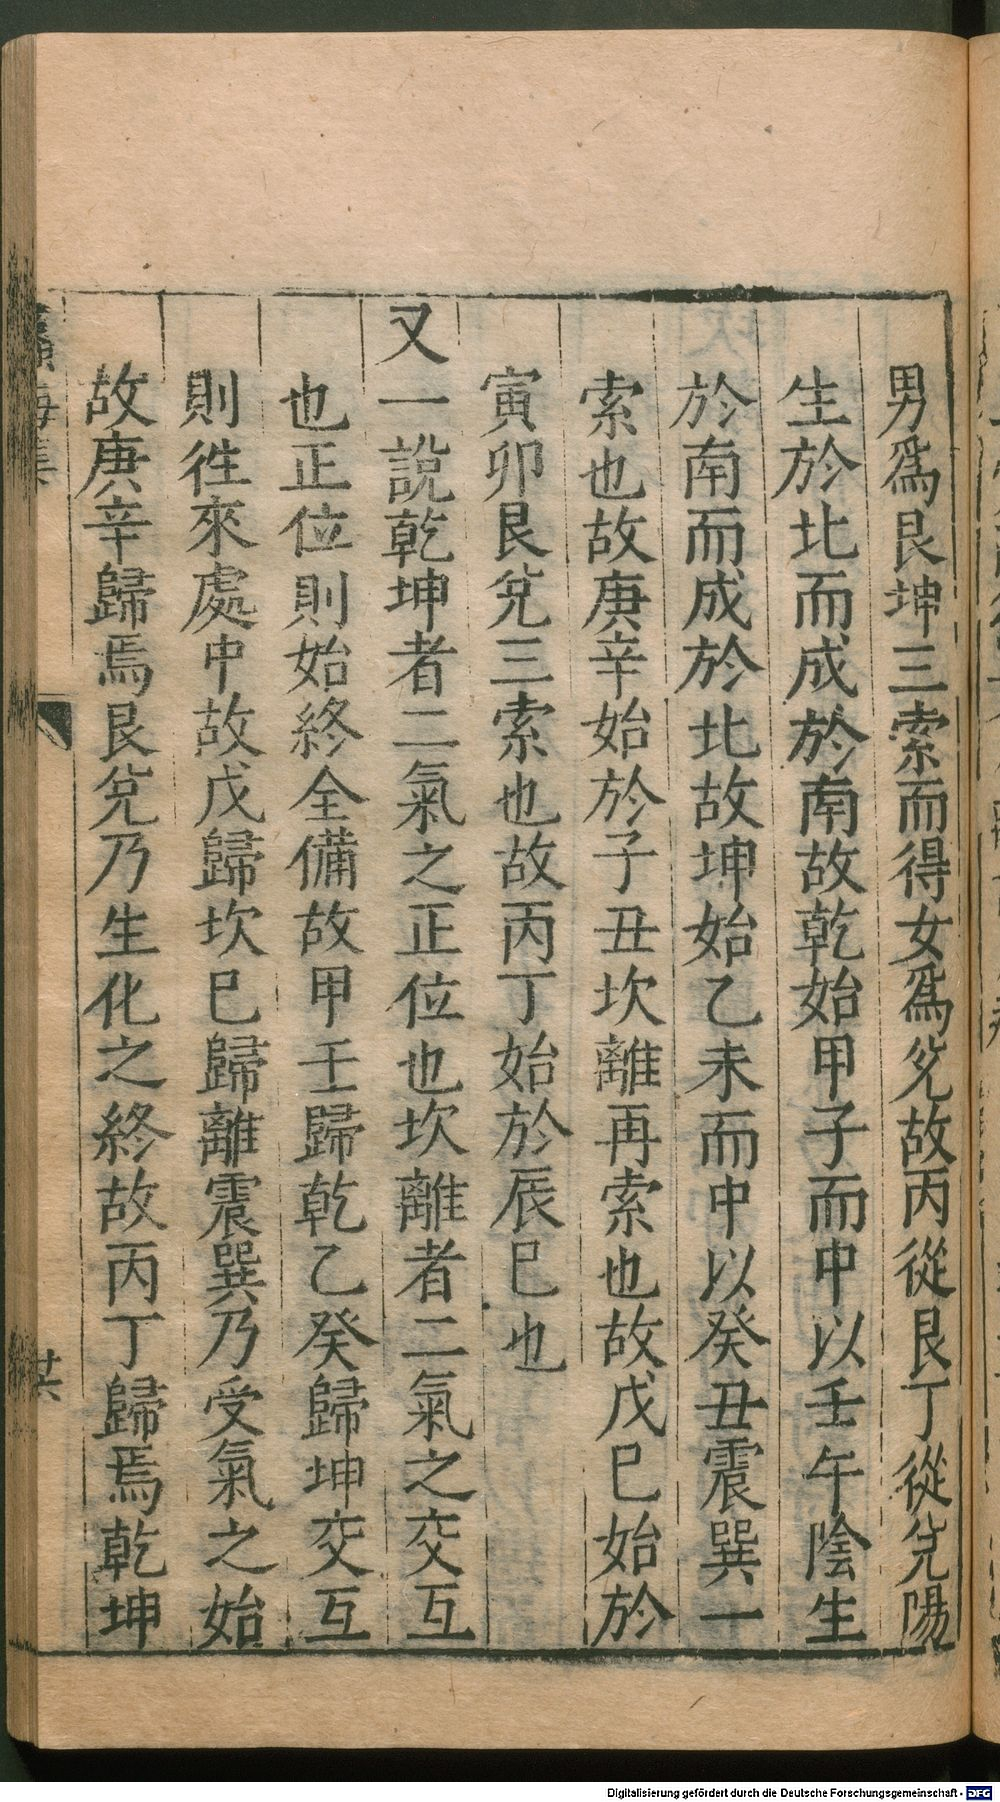 男爲艮坤三索而得女爲兌故丙從艮丁從兌陽
生於北而成於南故乾始甲子而中以壬午陰生
於南而成於北故坤始乙未而中以癸丑震巽一
索也故庚辛始於子丑坎離再索也故戊巳始於
寅卯艮兌三索也故丙丁始於辰巳也
又一說乾坤者二氣之正位也坎離者二氣之交互
也正位則始終全備故甲壬歸乾乙癸歸坤交互
則徃來處中故戊歸坎巳歸離震巽乃受氣之始
故庚辛歸焉艮兌乃生化之終故丙丁歸焉乾坤
Digitalisierung gefördert durch die Deutsche Forschungsgemeinschaft - DFG